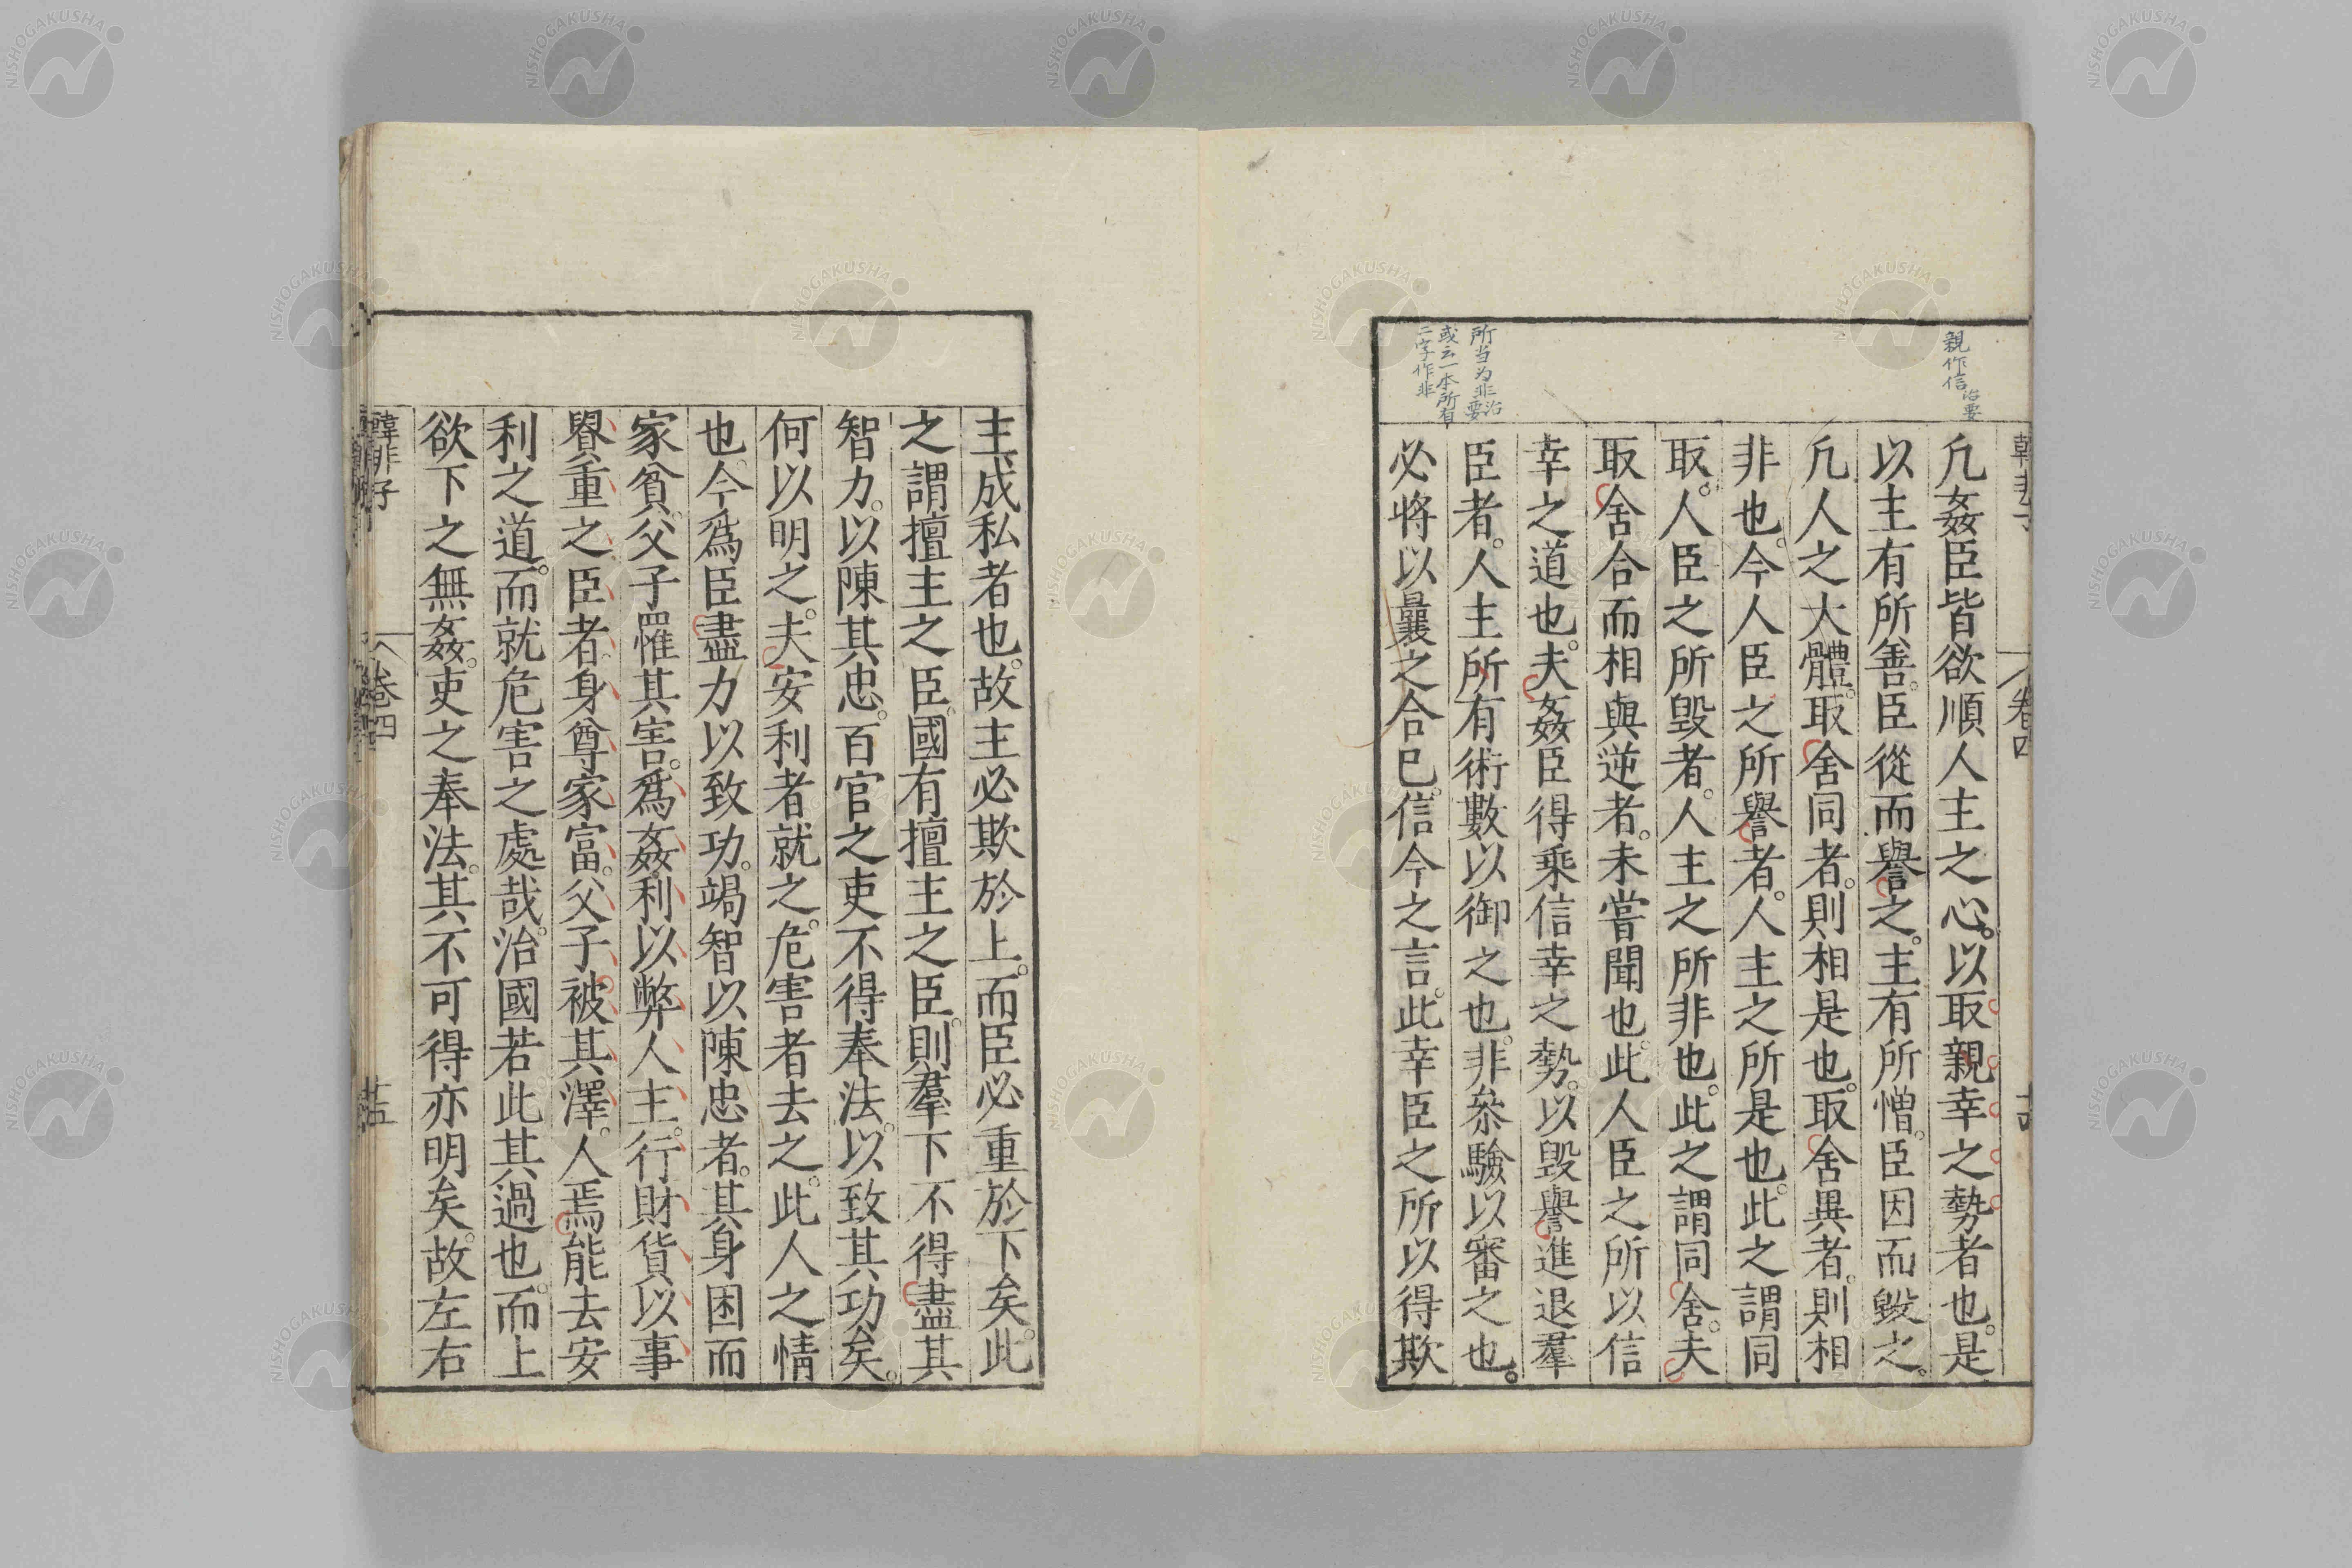 親作信治要
所当为非治要
或云一本所有
二字作非
凢姦臣皆欲順人主之心。以取親幸之勢者也。是
以主有所善。臣從而譽之。主有所憎。臣因而毀之。
凢人之大體。取舍同者。則相是也。取舍異者。則相
非也。今人臣之所譽者。人主之所是也。此之謂同
取。人臣之所毀者。人主之所非也。此之謂同舍。夫
取舍合而相與逆者。未嘗聞也。此人臣之所以信
幸之道也。夫姦臣得乗信幸之勢。以毀譽進退羣
臣者。人主所有術數以御之也。非叅驗以審之也。
必將以曩之合巳。信今之言。此幸臣之所以得欺
卷四
主成私者也。故主必欺於上。而臣必重於下矣。此
之謂擅主之臣。國有擅主之臣。則羣下不得盡其
智力。以陳其忠。百官之吏不得奉法。以致其功矣。
何以明之。夫安利者就之。危害者去之。此人之情
也。今爲臣盡力以致功。竭智以陳忠者。其身困而
家貧。父子罹其害。爲姦利以弊人主。行財貨以事
貴重之臣者。身尊家富。父子被其澤。人焉能去安
利之道。而就危害之處哉。治國若此其過也。而上
欲下之無姦。吏之奉法。其不可得亦明矣。故左右
韓非子
卷四
NISHOGAKUSHA